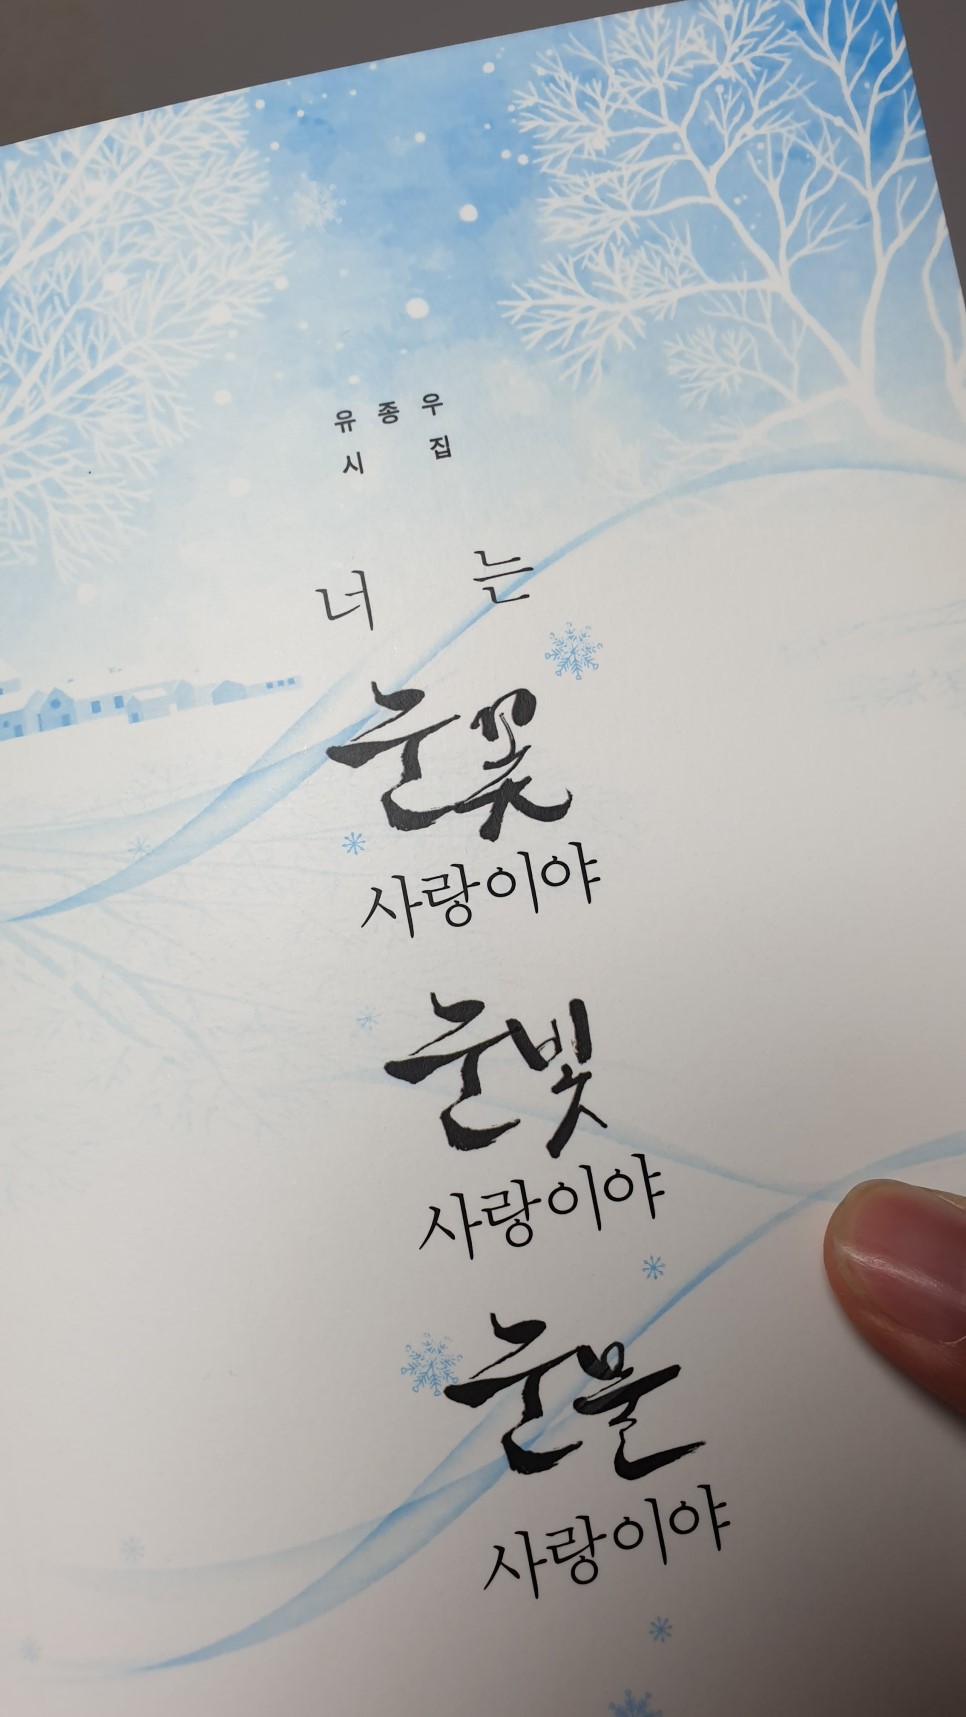 유종우
시 집
너 는
눈꽃
사랑이야
눈빛
사랑이야
눈물
사랑이야